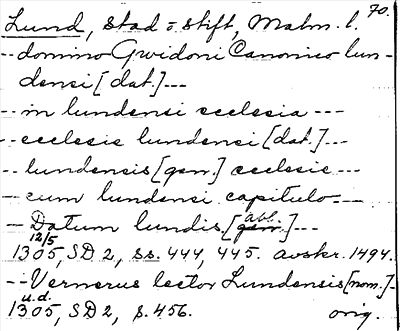 70.
Lund, stad o stift, Malm. l.
-- domino Gwidoni Canonico lun-
densi [dat.] ---
-- in lundensi ecclesia ---
-- ecclesie lundensi [dat.] ---
-- lundensis [gen.] ecclesie ---
-- cum lundensi capitulo ---
-- Datum lundis [gen. abl.] ---
12/5
1305, SD 2, ss. 444, 445. avskr. 1494.
-- Vernerus lector Lundensis [nom.] -
u.d.
1305, SD 2, s. 456. orig.